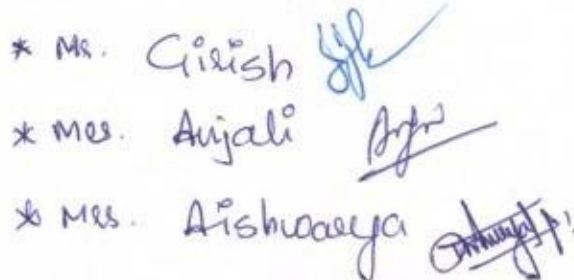 * Mr. Girish
* Mrs. Anjali
* Mrs. Aishwarya